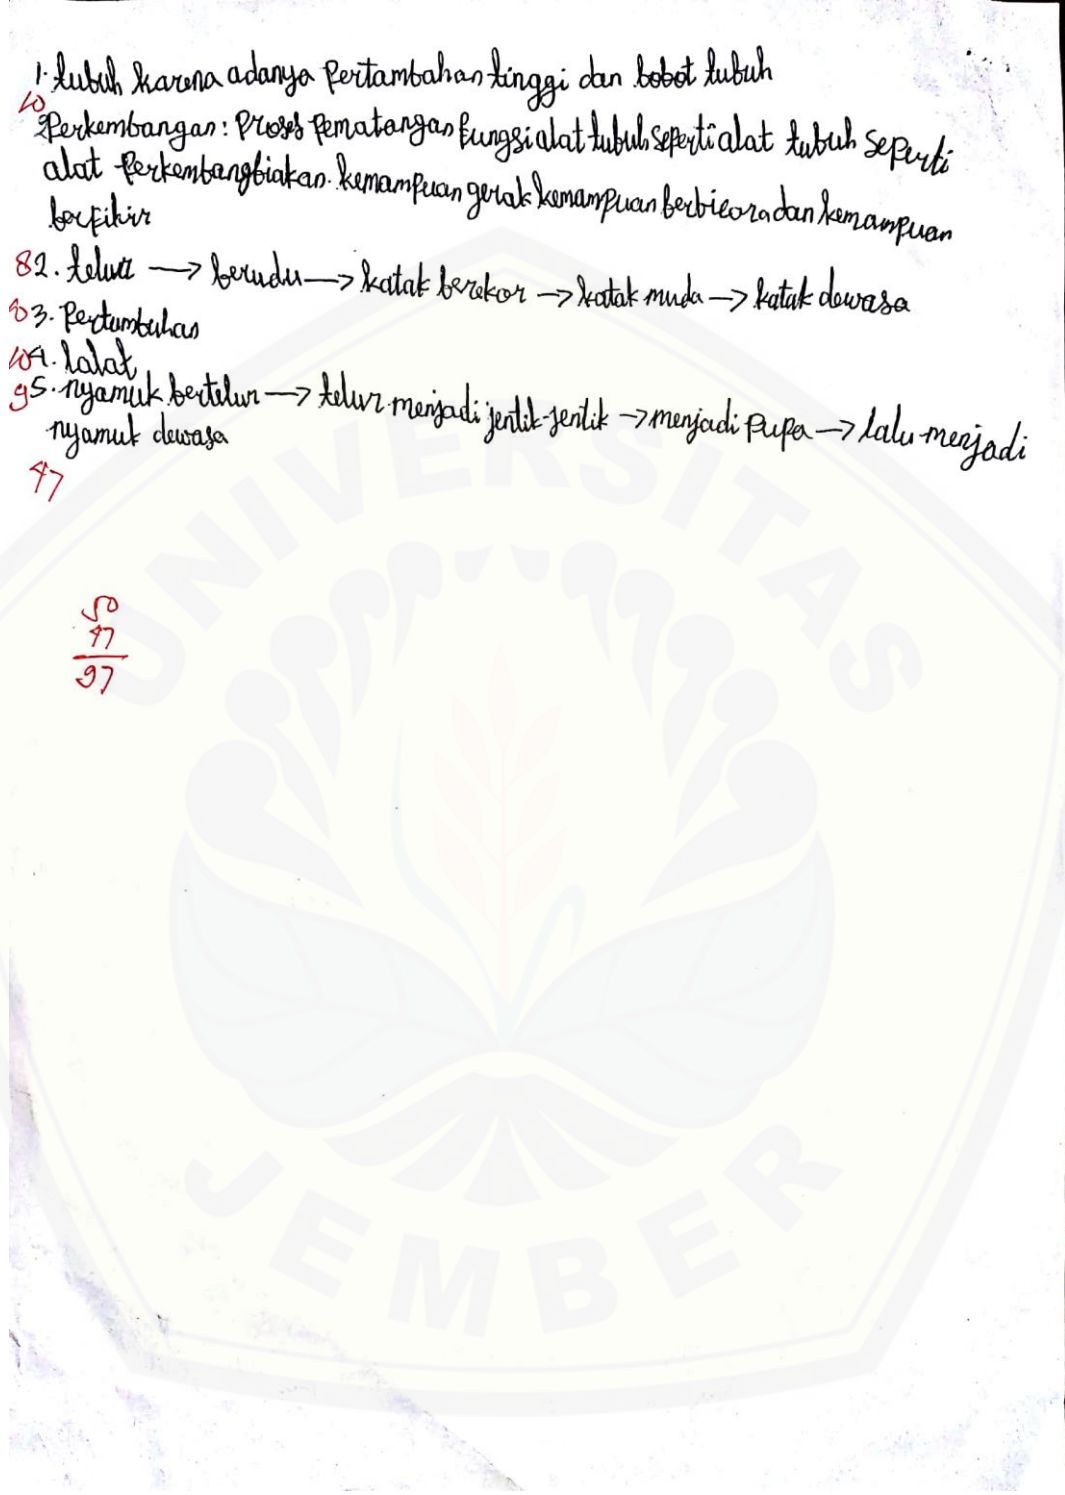 1. tubuh karena adanya Pertambahan tinggi dan bobot tubuh
10
Perkembangan: Proses Pematangan fungsi alat tubuh seperti alat tubuh seperti
alat Perkembangbiakan. kemampuan gerak kemampuan berbicora dan kemampuan
berfikir
8 2. telur → berudu → katak berekor → katak muda → katak dewasa
3. Pertumbuhan
10 4. lalat
9 5. nyamuk bertelur → telur menjadi jentik-jentik → menjadi Pupa → lalu menjadi
nyamuk dewasa
47
50
47
97
UNIVERSITAS
JEMBER